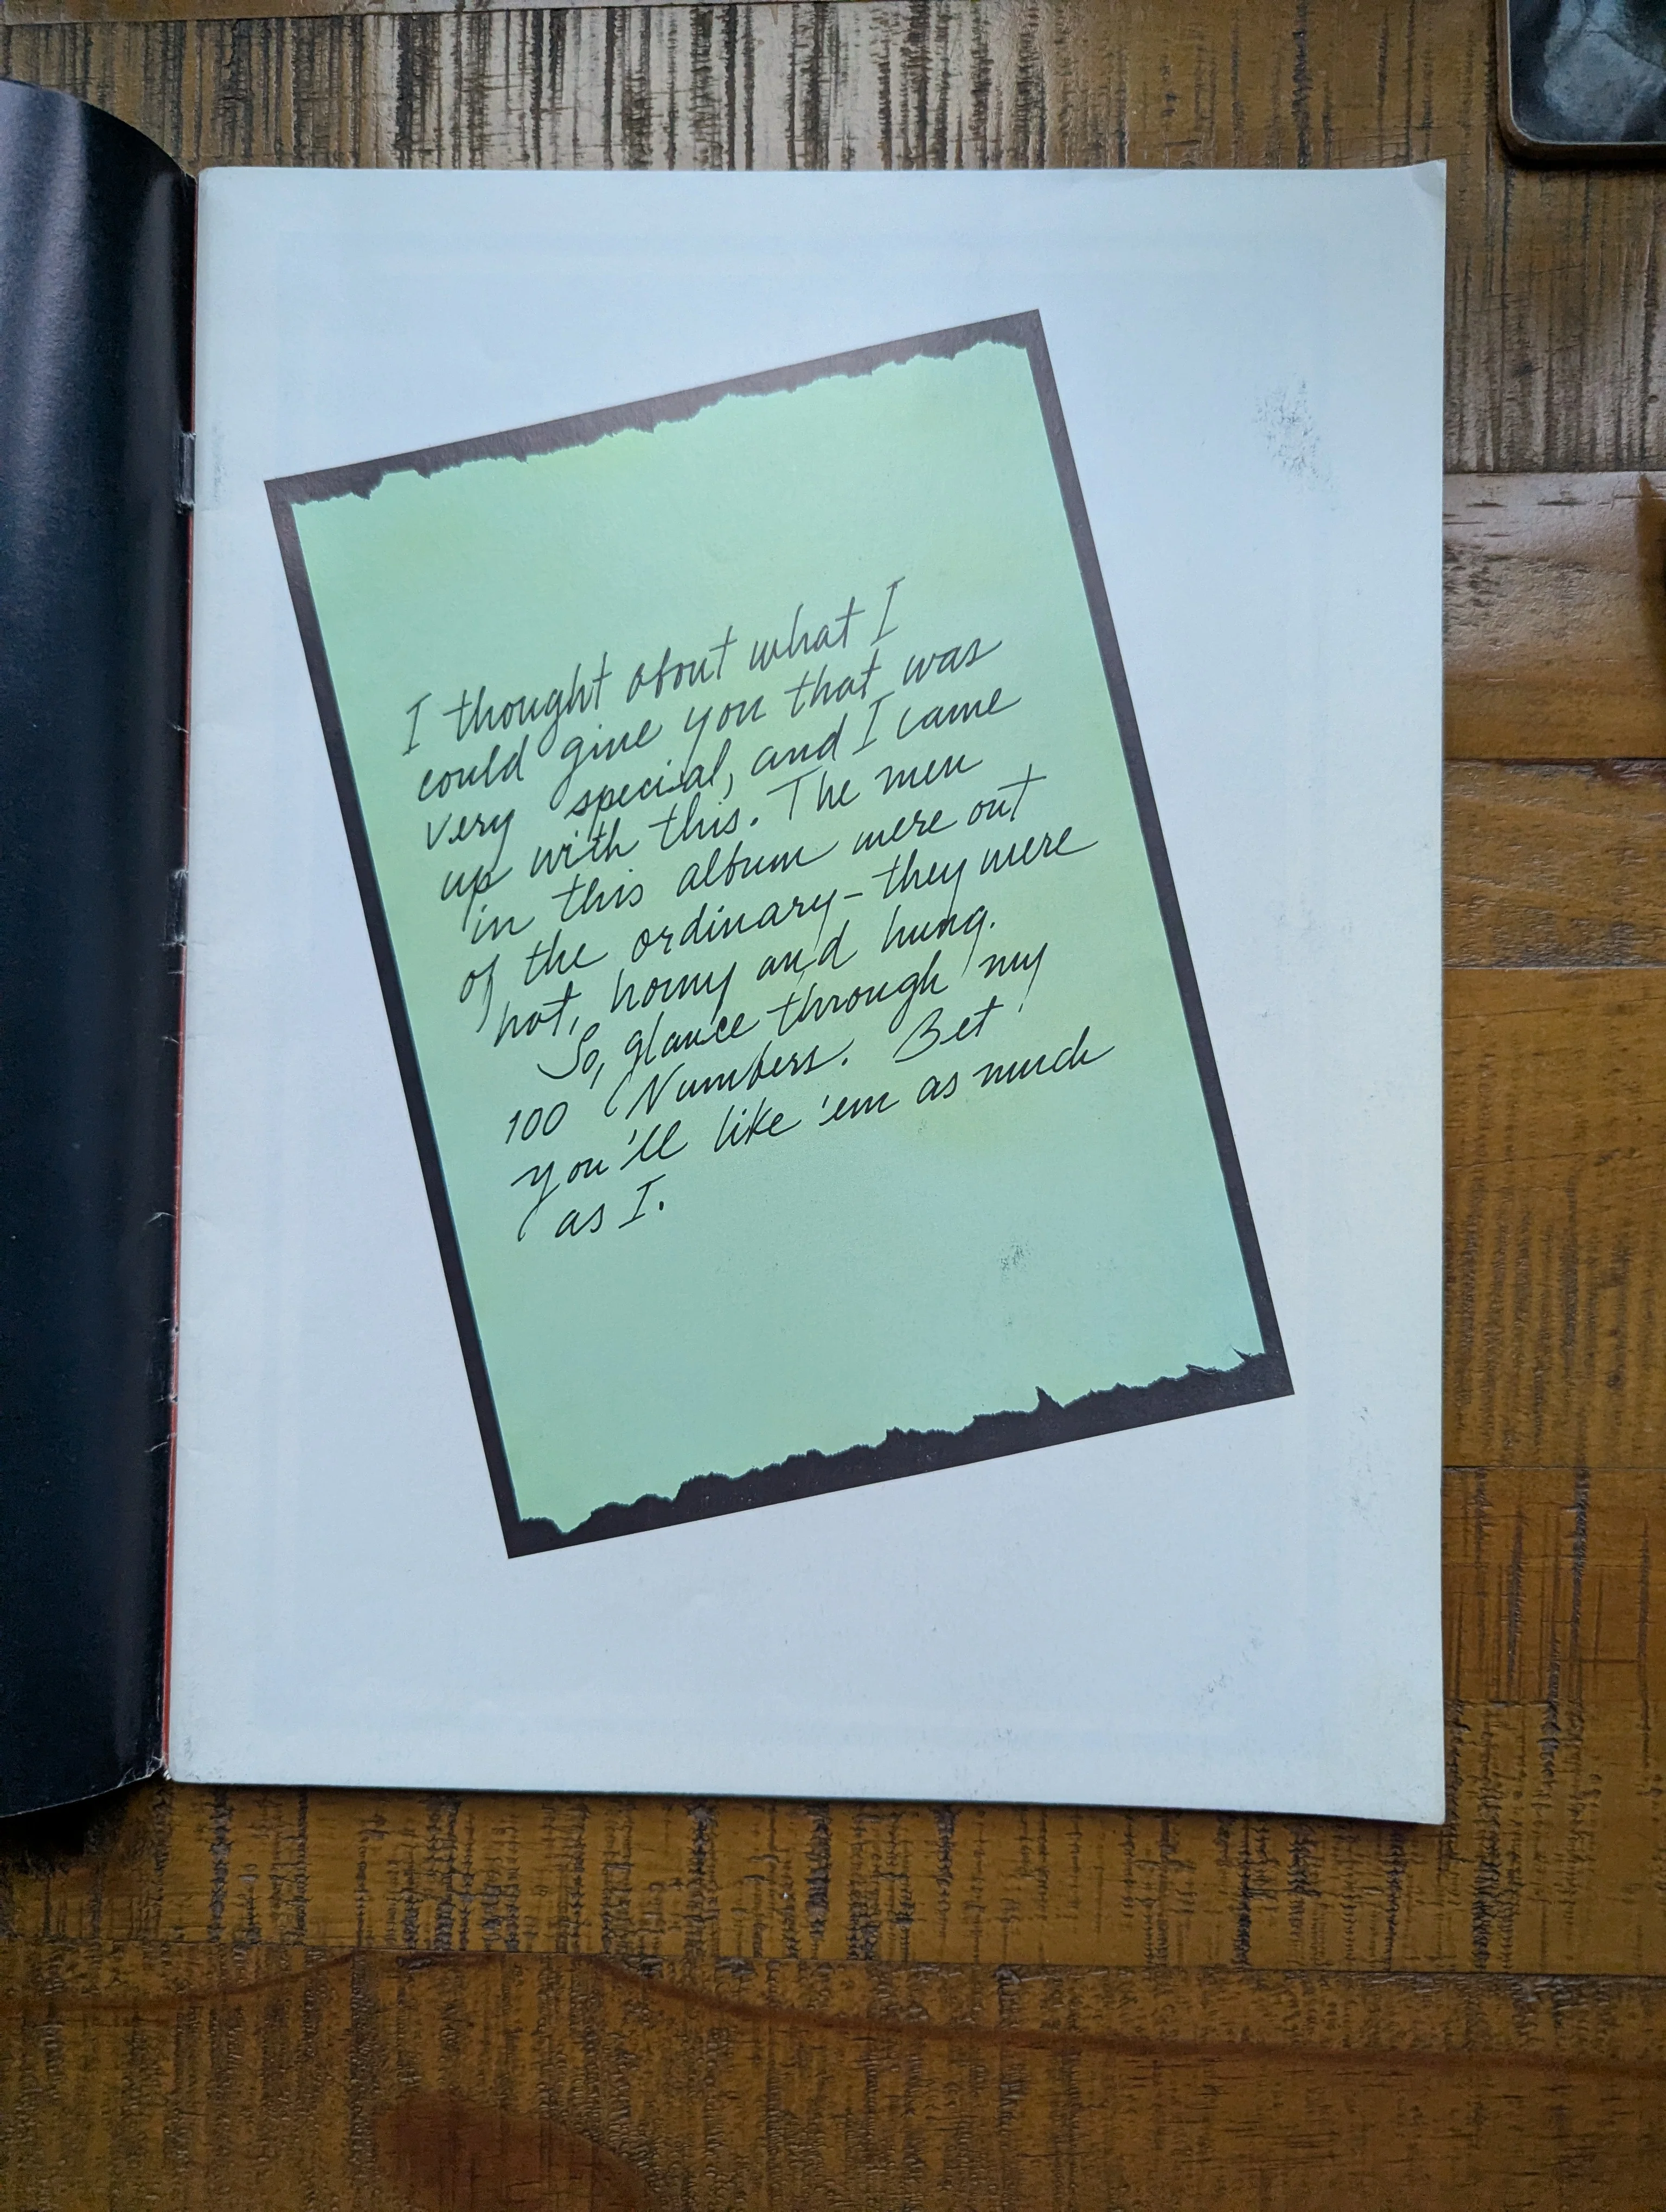 I thought about what I
could give you that was
very special, and I came
up with this. The men
in this album were out
of the ordinary – they were
hot, horny and hung.
So, glance through my
100 Numbers. Bet
you'll like 'em as much
as I.